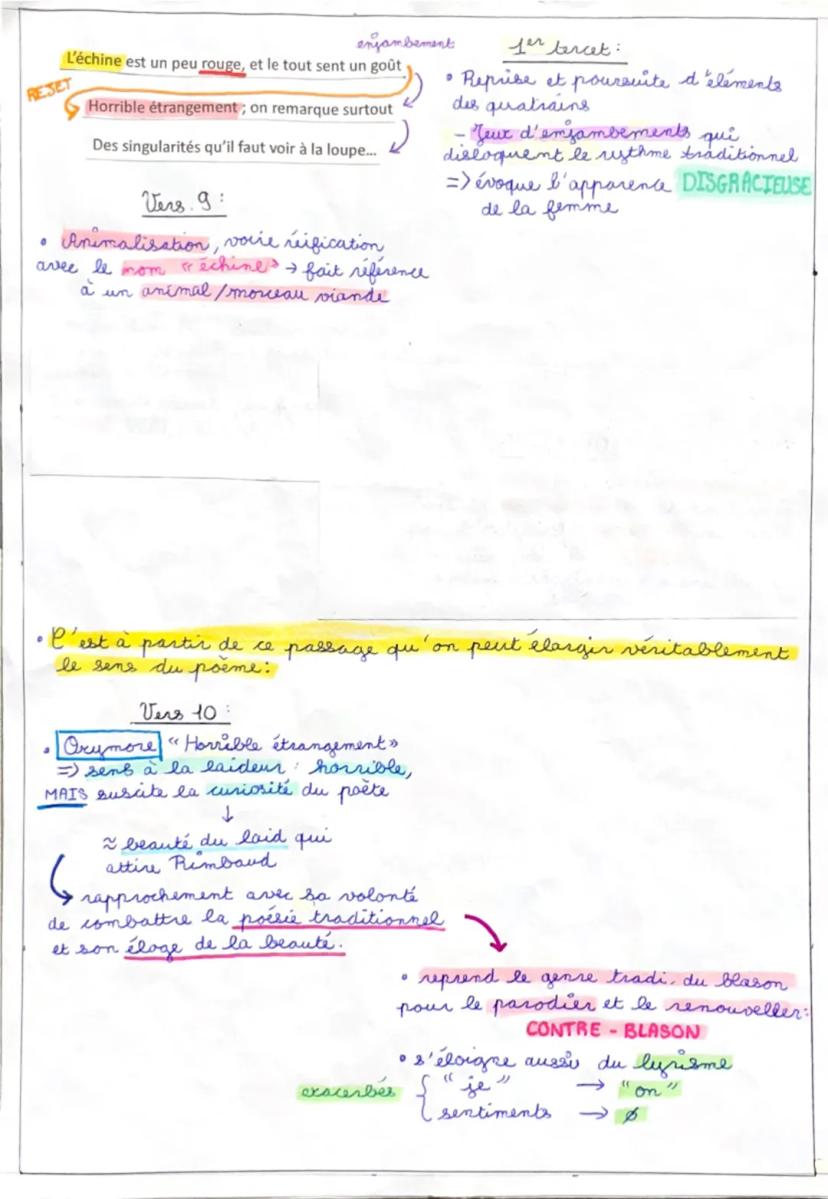 enjambement
L'échine est un peu rouge, et le tout sent un goût
REJET
Horrible étrangement ; on remarque surtout
Des singularités qu'il faut voir à la loupe...
1er tercet :
• Reprise et poursuite d'éléments
des quatrains
- Jeux d'enjambements qui
disloquent le rythme traditionnel
=> évoque l'apparence DISGRACIEUSE
de la femme
Vers 9 :
• Animalisation, voire réification
avec le nom "échine" → fait référence
à un animal/morceau viande
• C'est à partir de ce passage qu'on peut élargir véritablement
le sens du poème :
Vers 10 :
• Oxymore "Horrible étrangement"
=> sens à la laideur : horrible,
MAIS suscite la curiosité du poète
↓
≈ beauté du laid qui
attire Rimbaud
↳ rapprochement avec sa volonté
de combattre la poésie traditionnel
et son éloge de la beauté.
• reprend le genre tradi. du blason
pour le parodier et le renouveller :
CONTRE - BLASON
• s'éloigne aussi du lyrisme
exacerbés { "je" → "on"
sentiments → ∅